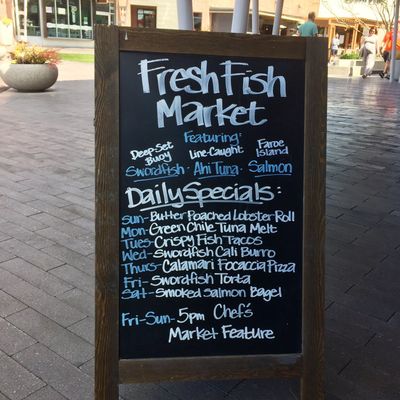 Fresh Fish
Market
Featuring:
Deep-Set Buoy Swordfish · Line-Caught Ahi Tuna · Faroe Island Salmon
Daily Specials:
Sun- Butter Poached Lobster Roll
Mon- Green Chile Tuna Melt
Tues- Crispy Fish Tacos
Wed- Swordfish Cali Burro
Thurs- Calamari Focaccia Pizza
Fri- Swordfish Torta
Sat- Smoked Salmon Bagel
Fri-Sun- 5pm Chef's
Market Feature